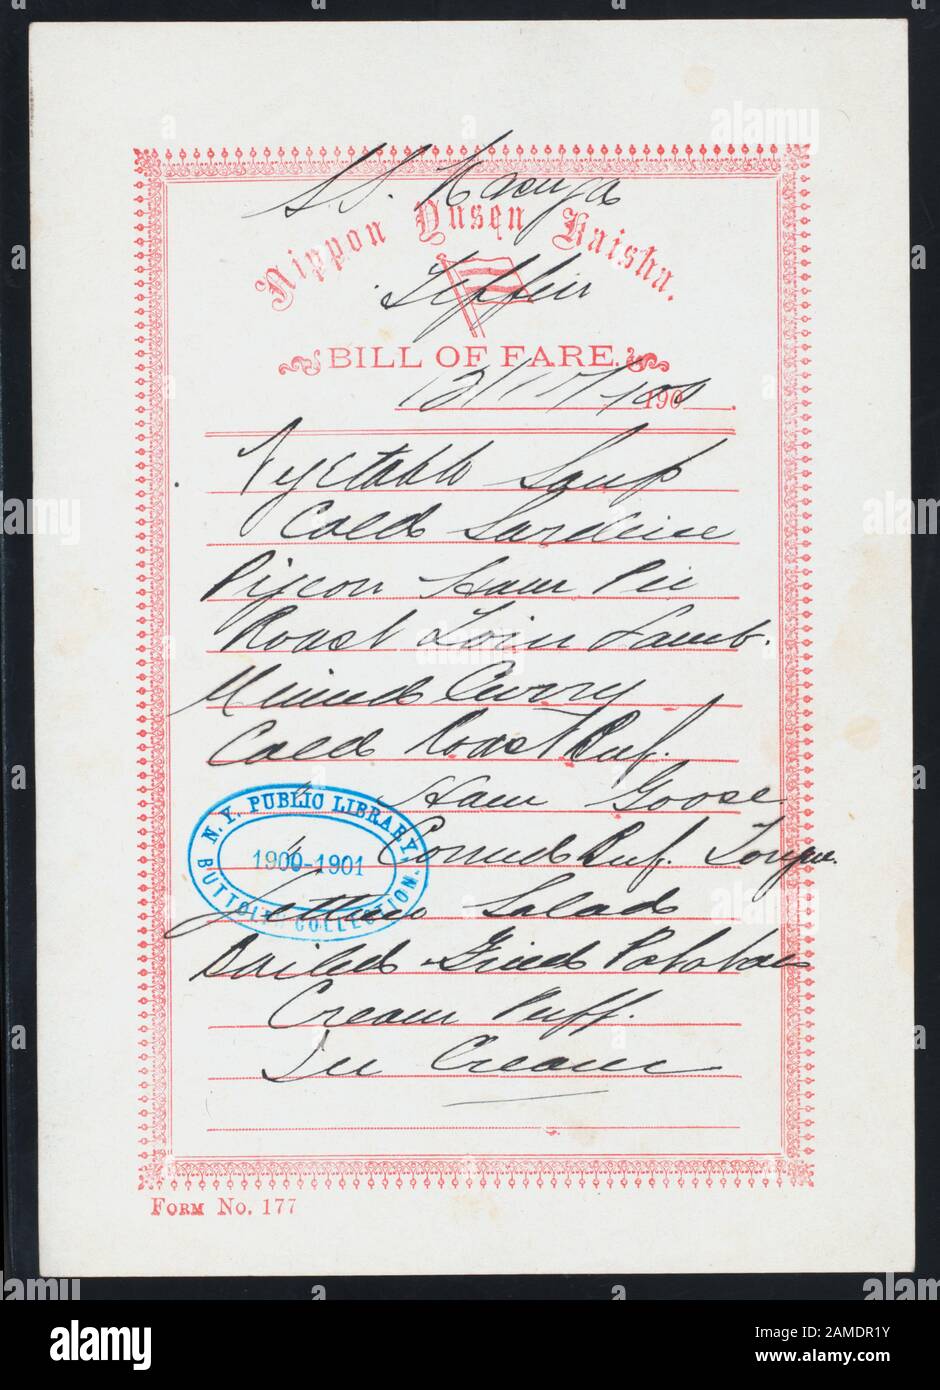 S.S. Kasuga
Nippon Yusen Kaisha.
Tiffin
BILL OF FARE.
12/17/1900
190
Vegetable Soup
Cold Sardine
Pigeon Ham Pie
Roast Loin Lamb.
Minced Curry
Cold Roast Beef.
" Ham Goose
" Corned Beef. Tongue.
Lettuce Salad
Boiled Fried Potatoes
Cream Puff.
Ice Cream
N. Y. PUBLIC LIBRARY,
1900-1901
BUTTOLPH COLLECTION.
FORM No. 177
alamy
Image ID: 2AMDR1Y
www.alamy.com